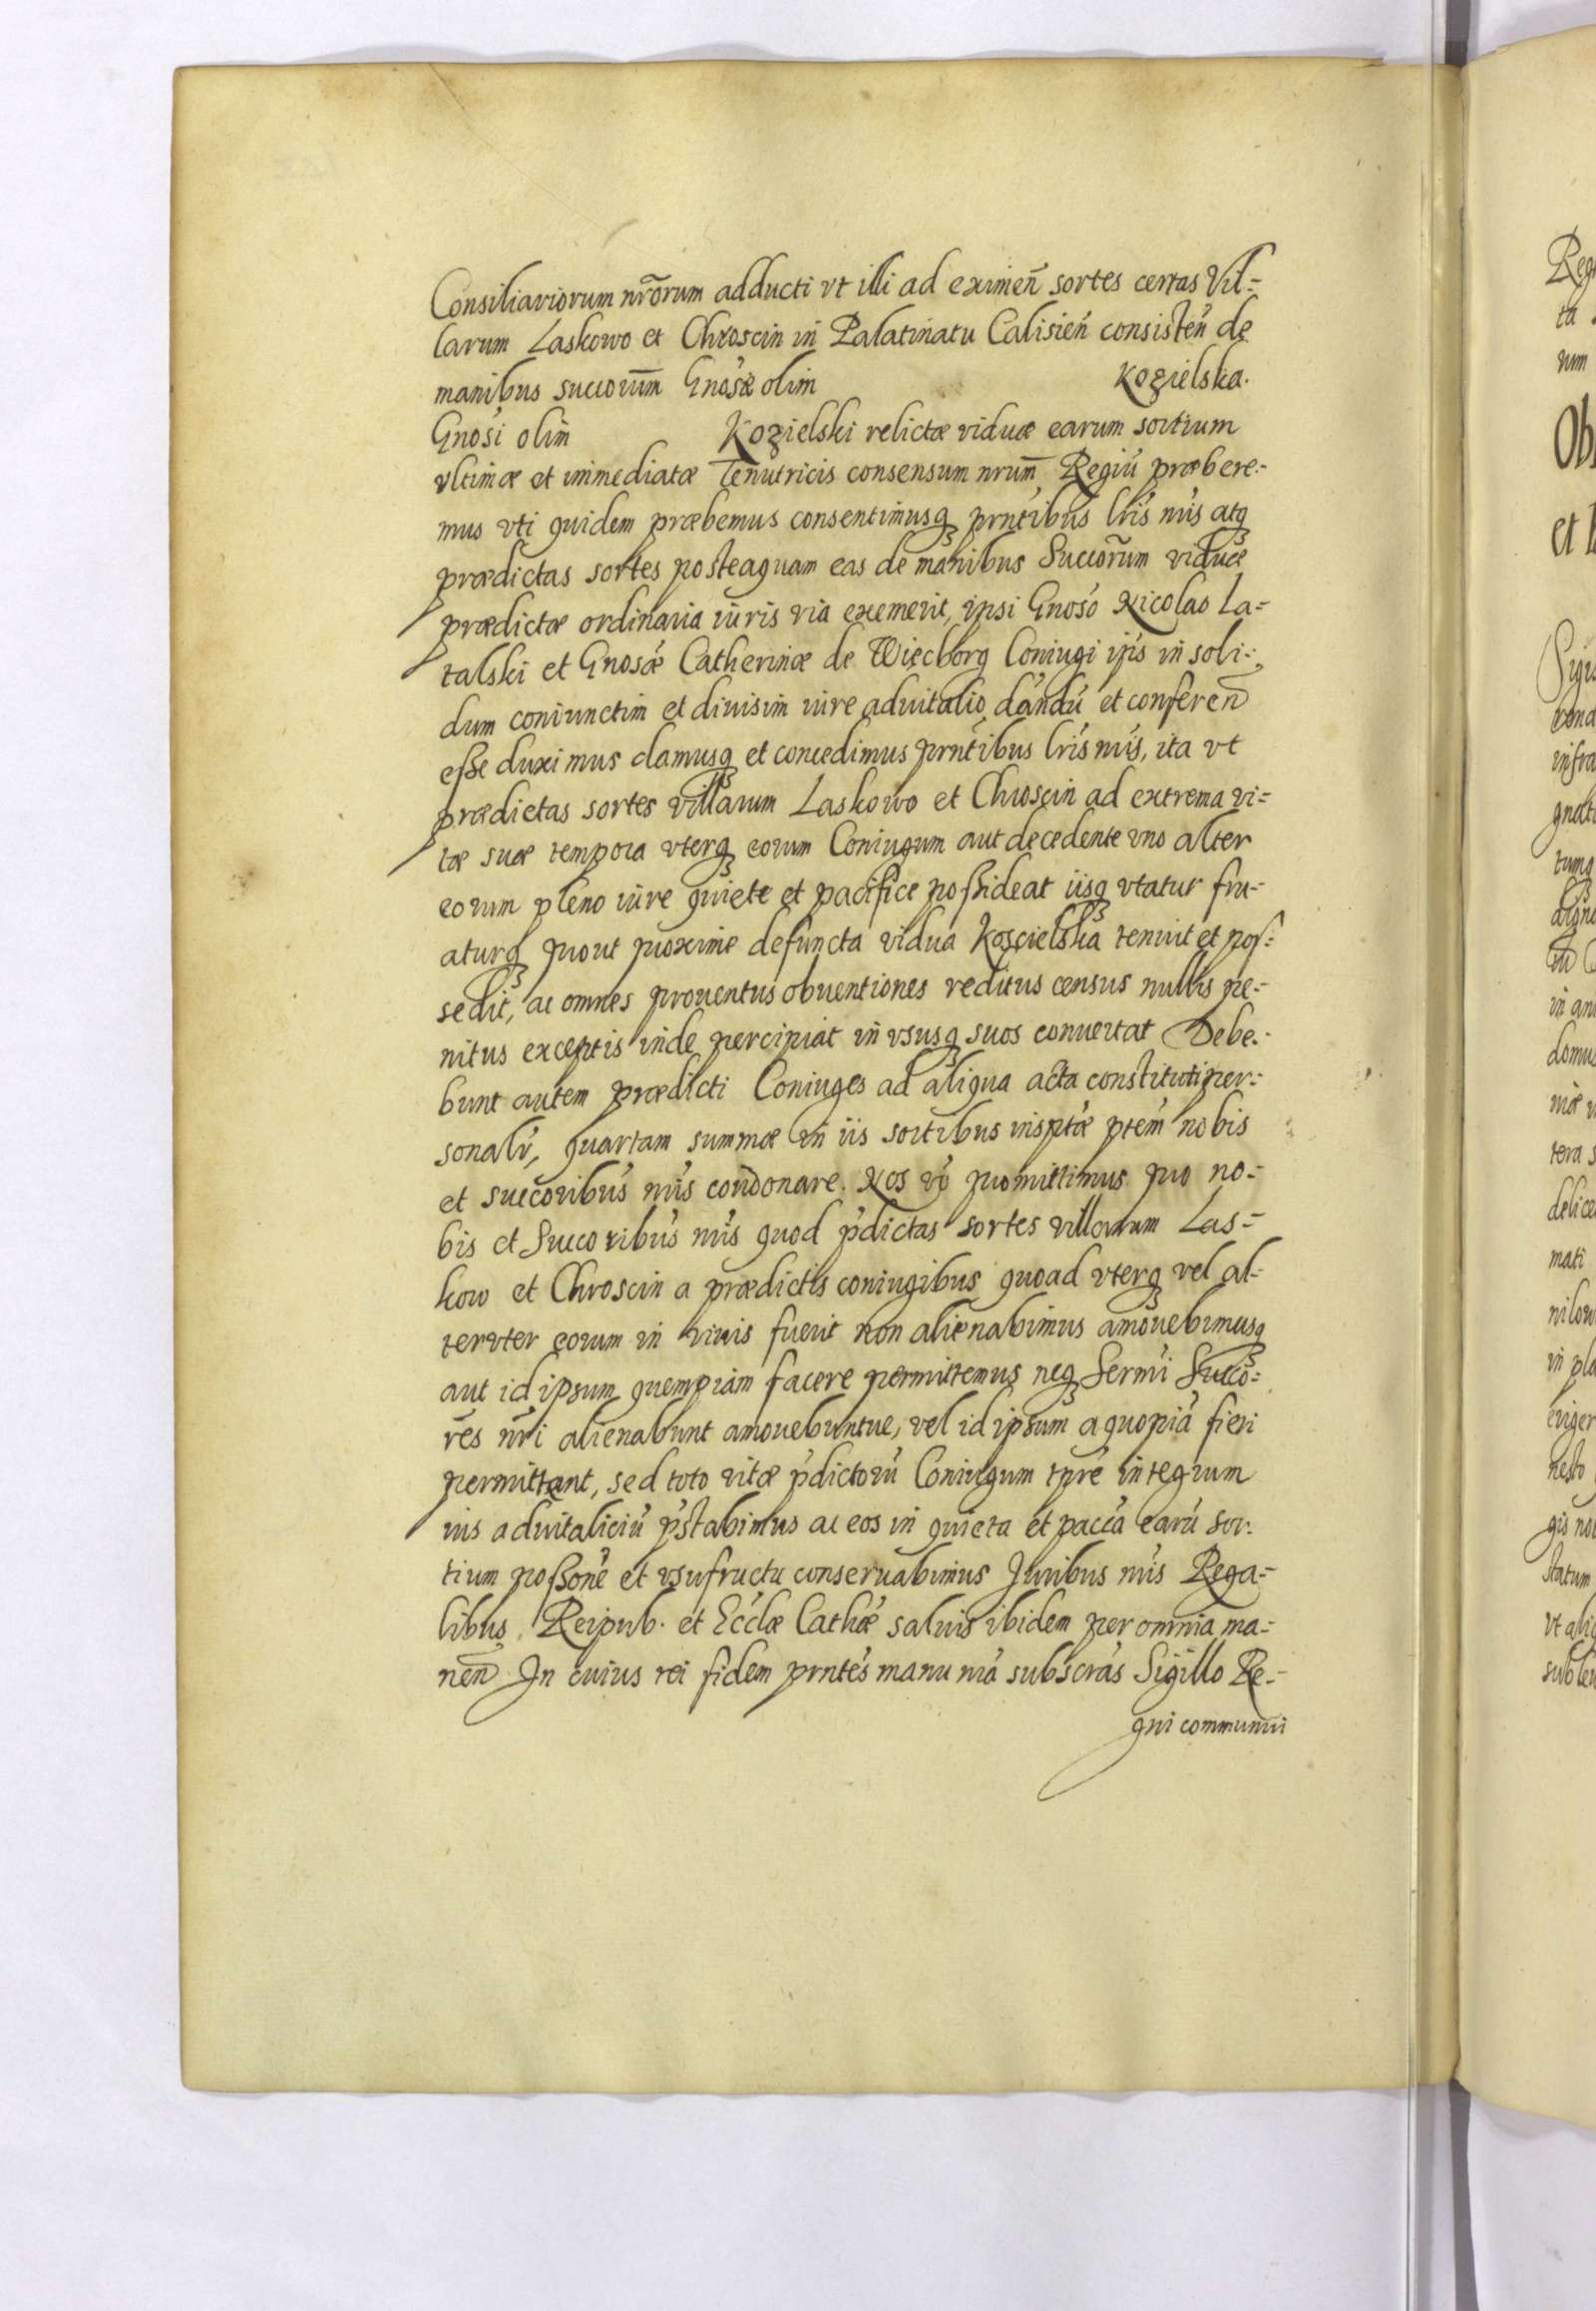 Consiliariorum nr̃orum adducti vt illi ad eximeñ sortes certas Vil=
larum Laskowo et Chroscin in Palatinatu Calisień consisteń de
manibus succorum̃ Gnosæ olim Kozielska.
Gnosi olim Kozielski relictæ viduæ earum sortium
vltimæ et immediatæ Tenutricis consensum nrum̃ Regiú præbere=
mus vti quidem præbemus consentimusq prntibus lris nr̃is atq
prædictas sortes posteaquam eas de manibus Succorũm viduæ
prædictæ ordinaria iuris via exemerit, ipsi Gnoso Nicolao La=
talski et Gnosæ Catherinæ de Więcborg Coniugi ipsis in soli=
dum coniunctim et diuisim iure aduitalio dandú et conferen̄
eße duximus damusq et concedimus prntibus lris nr̃is, ita vt
prædictas sortes villarum Laskowo et Chroscin ad extrema vi=
tæ suæ tempora vterq eorum Coniugum aut decedente vno alter
eorum pleno iure quiete et pacifice poßideat iisq vtatur fru=
aturq prout proxime defuncta vidua Koscielska tenuit et pos=
sedit, ac omnes prouentus obuentiones reditus census nullis pe=
nitus exceptis inde percipiat in vsusq suos conuertat Debe=
bunt autem prædicti Coniuges ad aliqua acta constituti per=
sonalr̃, quartam summæ in iis sortibus insptæ ptem nobis
et succoribus nr̃is condonare. Nos vo promittimus pro no=
bis et Succoribus nr̃is quod pdictas sortes villarum Las=
kow et Chroscin a prædictis coniugibus quoad vterq vel al=
teruter eorum in viuis fuerit non alienabimus amouebimusq
aut id ipsum quempiam facere permittemus neq Sermi Succo=
res nr̃i alienabunt amouebuntue, vel id ipsum a quopiá fieri
permittent, sed toto vitæ pdictorú Coniugum tpre integrum
ius aduitaliciú pstabimus ac eos in quieta et pacca earú sor=
tium poßone et vsufructu conseruabimus Juribus nr̃is Rega=
libus Reipub. et Ecclæ Cathæ saluis ibidem per omnia ma=
nen̄ In cuius rei fidem prntes manu nr̃a subscras Sigillo Re=
gni communi